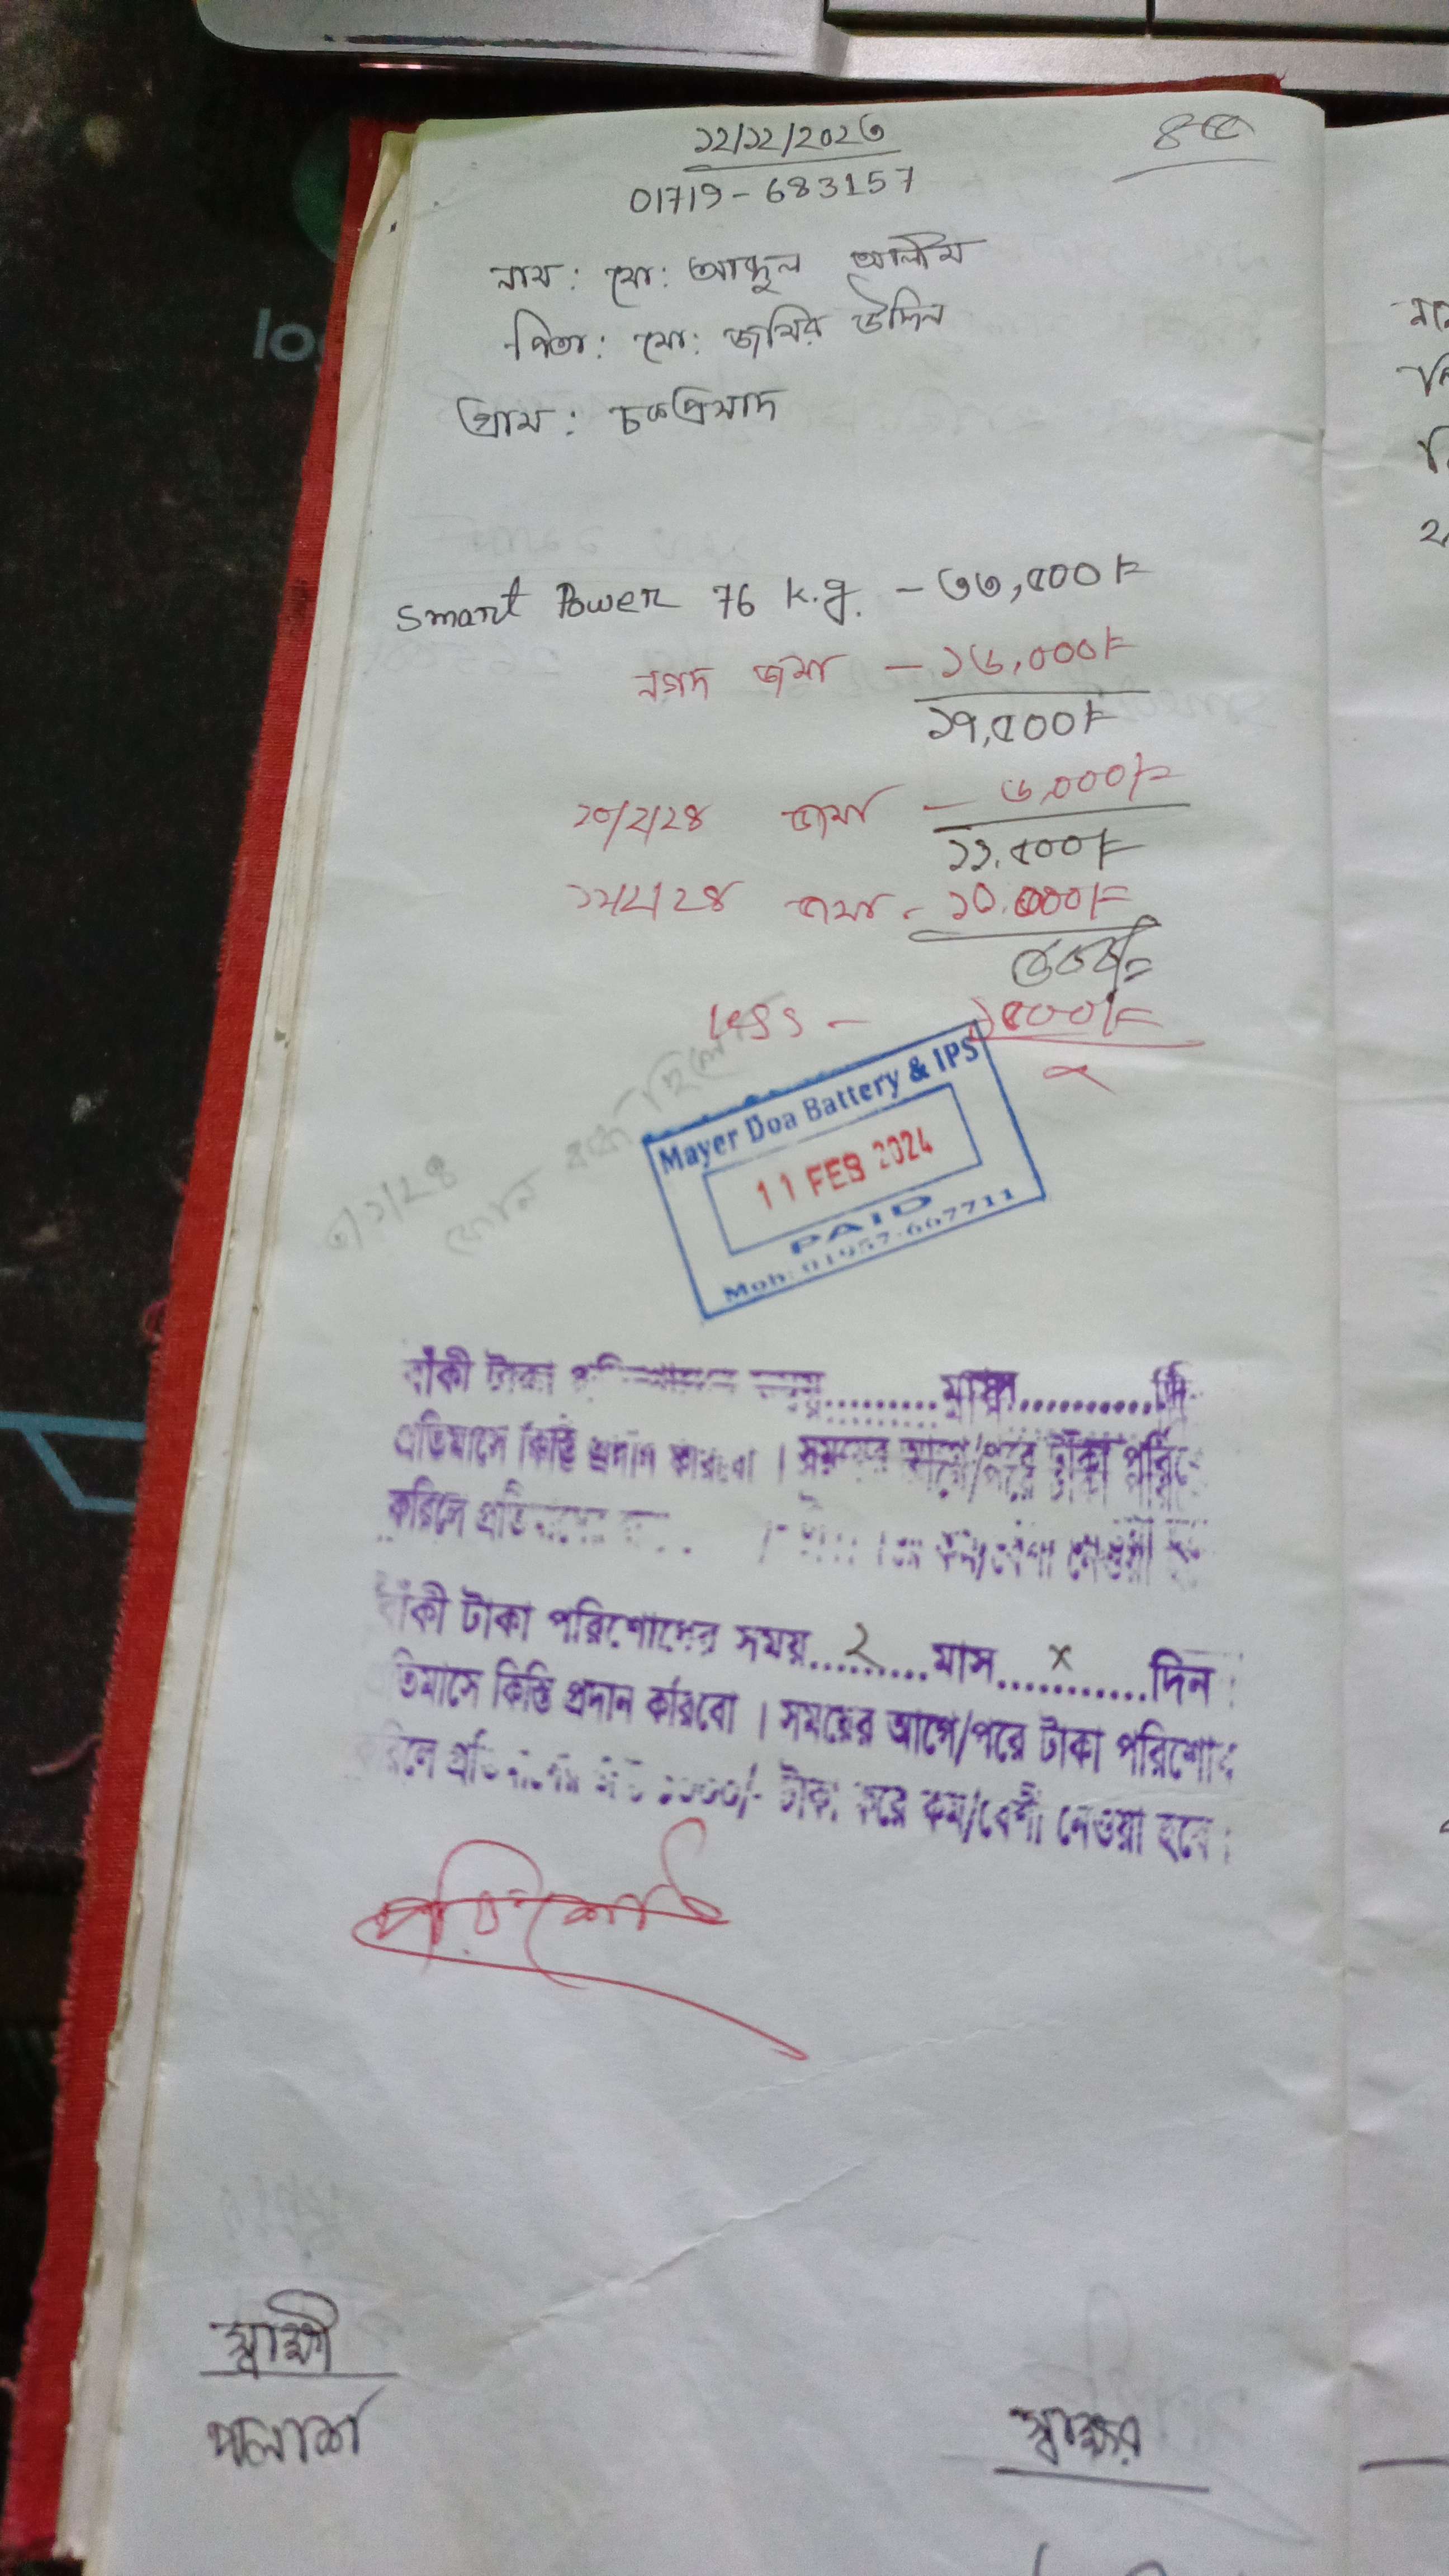 ১২/১২/২০২৩
৪৫
01719-683157
নাম: মো: আব্দুল আলীম
পিতা: মো: জমির উদ্দিন
গ্রাম: চকপ্রসাদ
Smart Power 76 k.g. - ৩৩,৫০০/=
নগদ জমা - ১৬,০০০/=
১৭,৫০০/=
২০/২/২৪ জমা - ৬,০০০/=
১১,৫০০/=
জমা - ১০,০০০/=
Less - ১৫০০/=
Mayer Doa Battery & IPS
11 FEB 2024
PAID
Mob: 01957-667711
বাঁকী টাকা মাস
প্রতিমাসে কিস্তি প্রদান করিবো। সময়ের আগে/পরে টাকা
করিলে কম/বেশী নেওয়া
বাঁকী টাকা পরিশোধের সময়....২....মাস....x....দিন
প্রতিমাসে কিস্তি প্রদান করিবো। সময়ের আগে/পরে টাকা পরিশোধ
করিলে ১০০০/- টাকা করে কম/বেশী নেওয়া হবে।
পরিশোধ
স্বাক্ষী
পলাশ
স্বাক্ষর